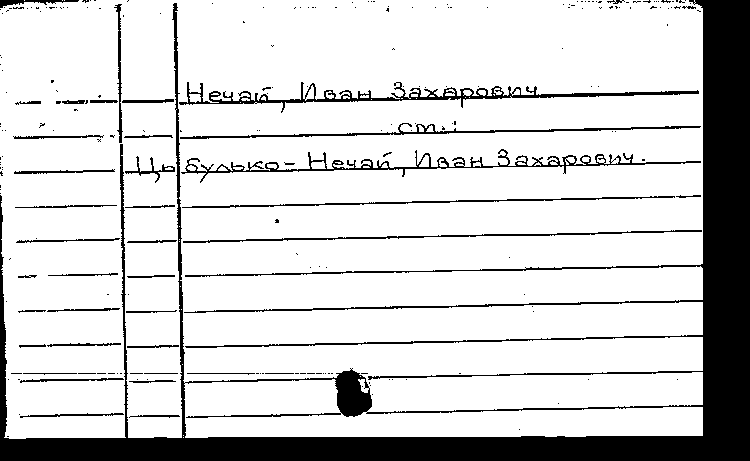 Нечай, Иван Захарович
ст.:
Цыбулько-Нечай, Иван Захарович.